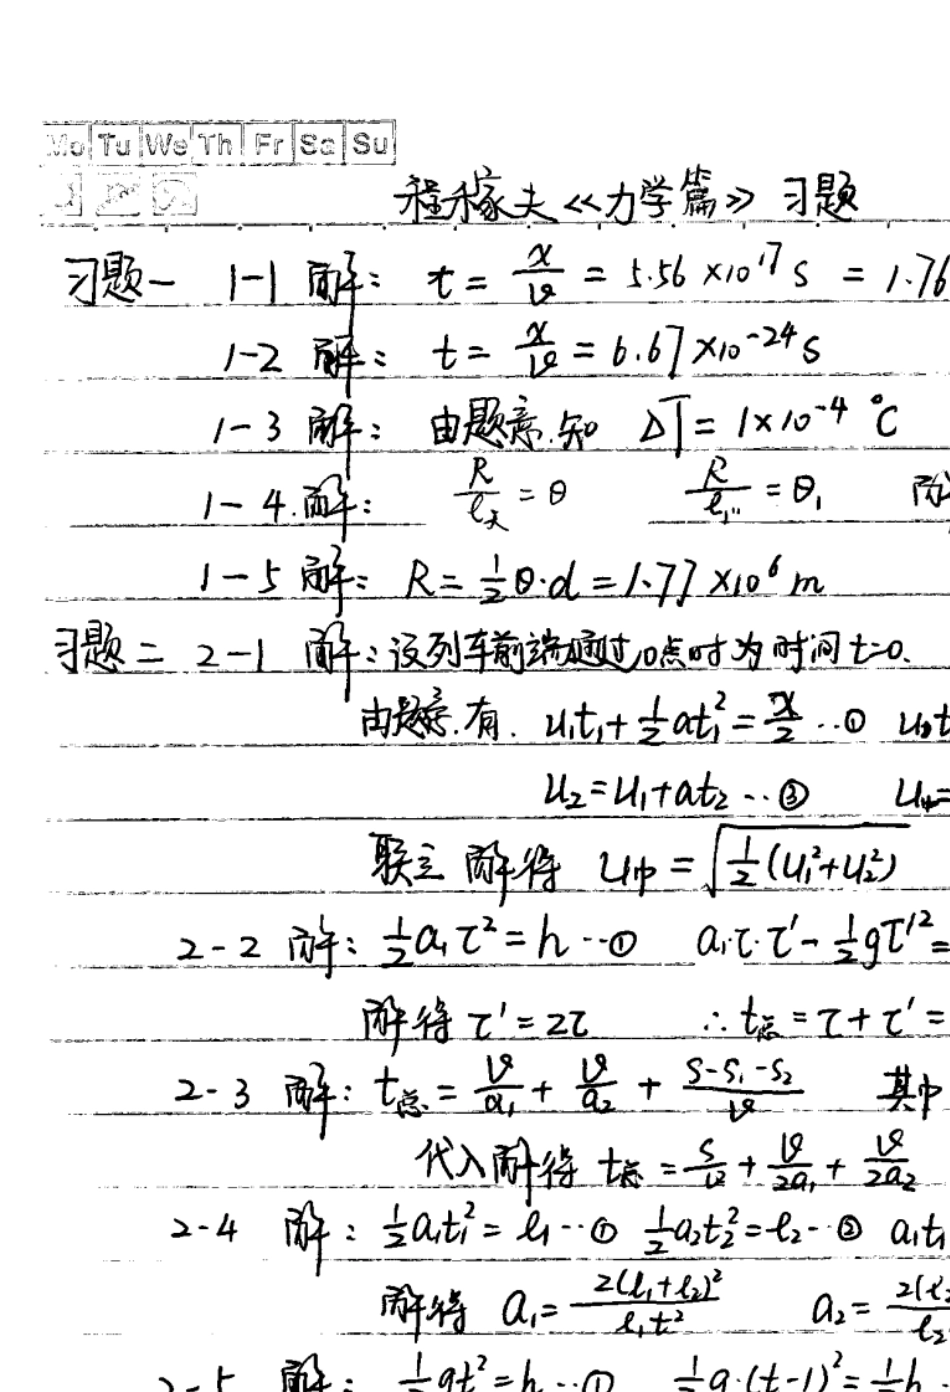 Mo Tu We Th Fr Sa Su
程稼夫《力学篇》习题
习题一 1-1 解: t = x/v = 5.56 ×10^17 s = 1.76
1-2 解: t = x/v = 6.67 ×10^-24 s
1-3 解: 由题意.知 ΔT = 1×10^-4 °C
1-4.解: R/l天 = θ R/l₁ = θ₁
1-5 解: R = 1/2 θ·d = 1.77 ×10^6 m
习题二 2-1 解:设列车前端通过O点时为时间t=0.
由题意.有. u₁t₁ + 1/2 at₁² = x/2 …①
u₂ = u₁ + at₂ …③ u中=
联立解得 u中 = √(1/2 (u₁²+u₂²))
2-2 解: 1/2 a₁τ² = h …① a₁τ·τ′ - 1/2 gτ′² =
解得 τ′ = 2τ ∴ t总 = τ + τ′ =
2-3 解: t总 = v/a₁ + v/a₂ + (S-S₁-S₂)/v 其中
代入解得 t总 = S/v + v/2a₁ + v/2a₂
2-4 解: 1/2 a₁t₁² = l₁ …① 1/2 a₂t₂² = l₂ …② a₁t₁
解得 a₁ = 2(l₁+l₂)²/l₁t² a₂ =
2-5 解: 1/2 gt² = h …① 1/2 g·(t-1)² = 1/2 h